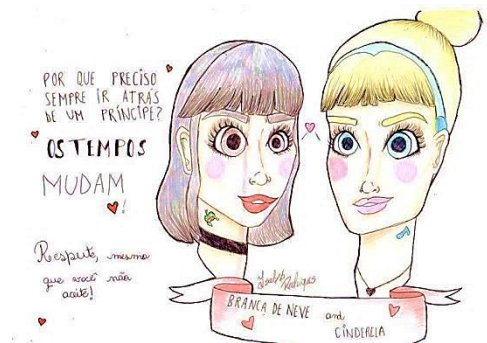 POR QUE PRECISO
SEMPRE IR ATRÁS
DE UM PRÍNCIPE?
OS TEMPOS
MUDAM
!
Respeite, mesmo
que você não
aceite!
Rodrigues
BRANCA DE NEVE and
CINDERELA